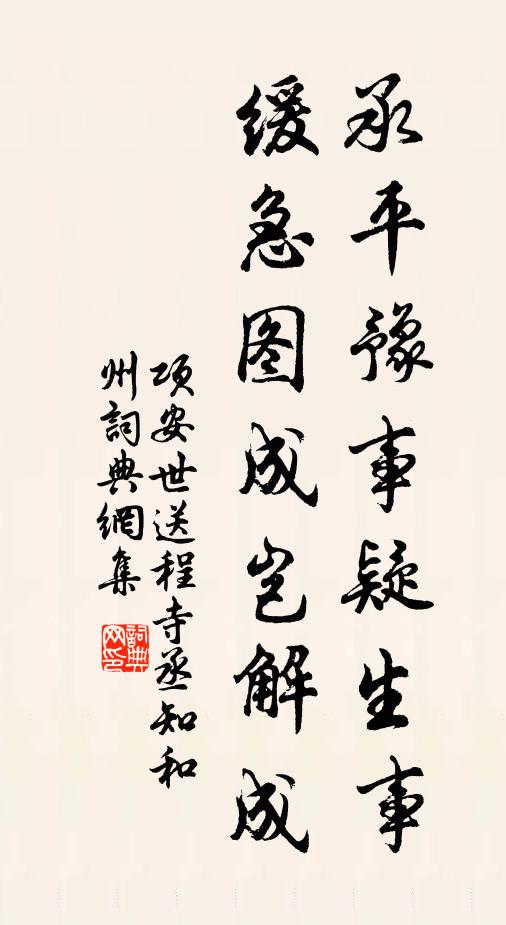 承平豫事疑生事
缓急图成岂解成
项安世送程寺丞知和
州词典网集
詞典
网印